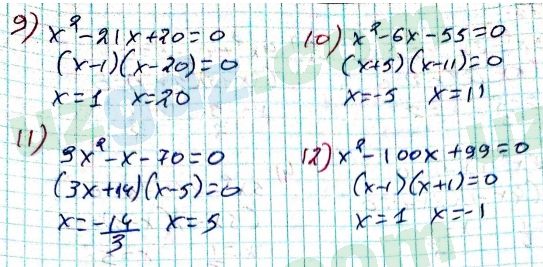 9) x²-21x+20=0
(x-1)(x-20)=0
x=1 x=20
10) x²-6x-55=0
(x+5)(x-11)=0
x=-5 x=11
11) 3x²-x-70=0
(3x+14)(x-5)=0
x=-14/3 x=5
12) x²-100x+99=0
(x-1)(x+1)=0
x=1 x=-1